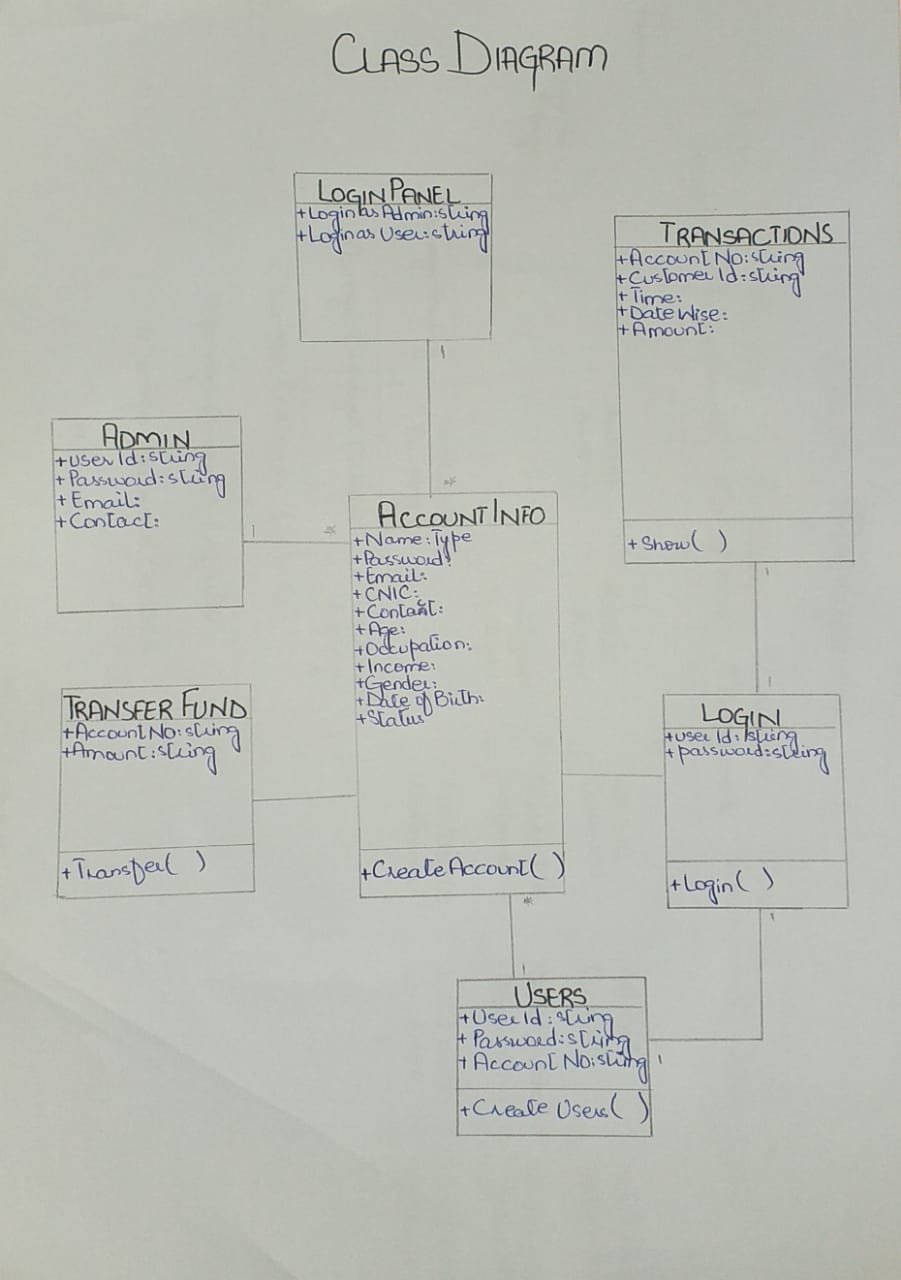 CLASS DIAGRAM
LOGIN PANEL
+Login as Admin:string
+Login as User:string
TRANSACTIONS
+Account No:string
+Customer Id:string
+Time:
+Date Wise:
+Amount:
+Show( )
1
1
ADMIN
+user Id:string
+Password:string
+Email:
+Contact:
1
*
*
ACCOUNT INFO
+Name:Type
+Password:
+Email:
+CNIC:
+Contact:
+Age:
+Occupation:
+Income:
+Gender:
+Date of Birth:
+Status
+Create Account( )
TRANSFER FUND
+Account No:string
+Amount:string
+Transfer( )
1
LOGIN
+user Id:string
+password:string
+Login( )
*
1
1
USERS
+User Id:string
+Password:string
+Account No:string
1
+Create Users( )